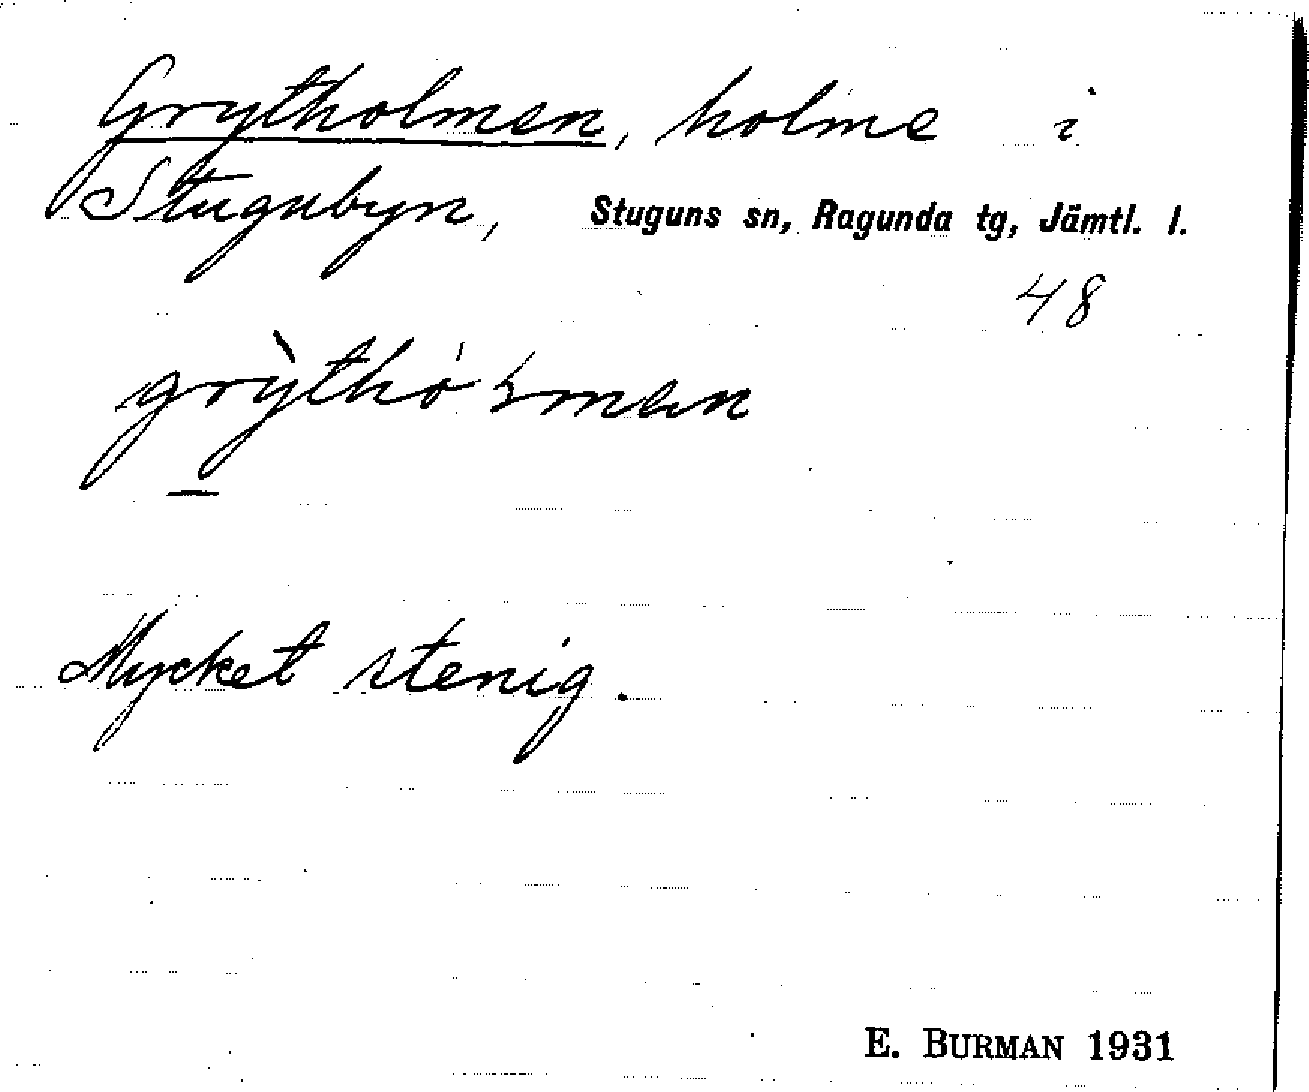 Grytholmen, holme i
Stugubyn, Stuguns sn, Ragunda tg, Jämtl. l.
48
Mycket stenig.
E. BURMAN 1931